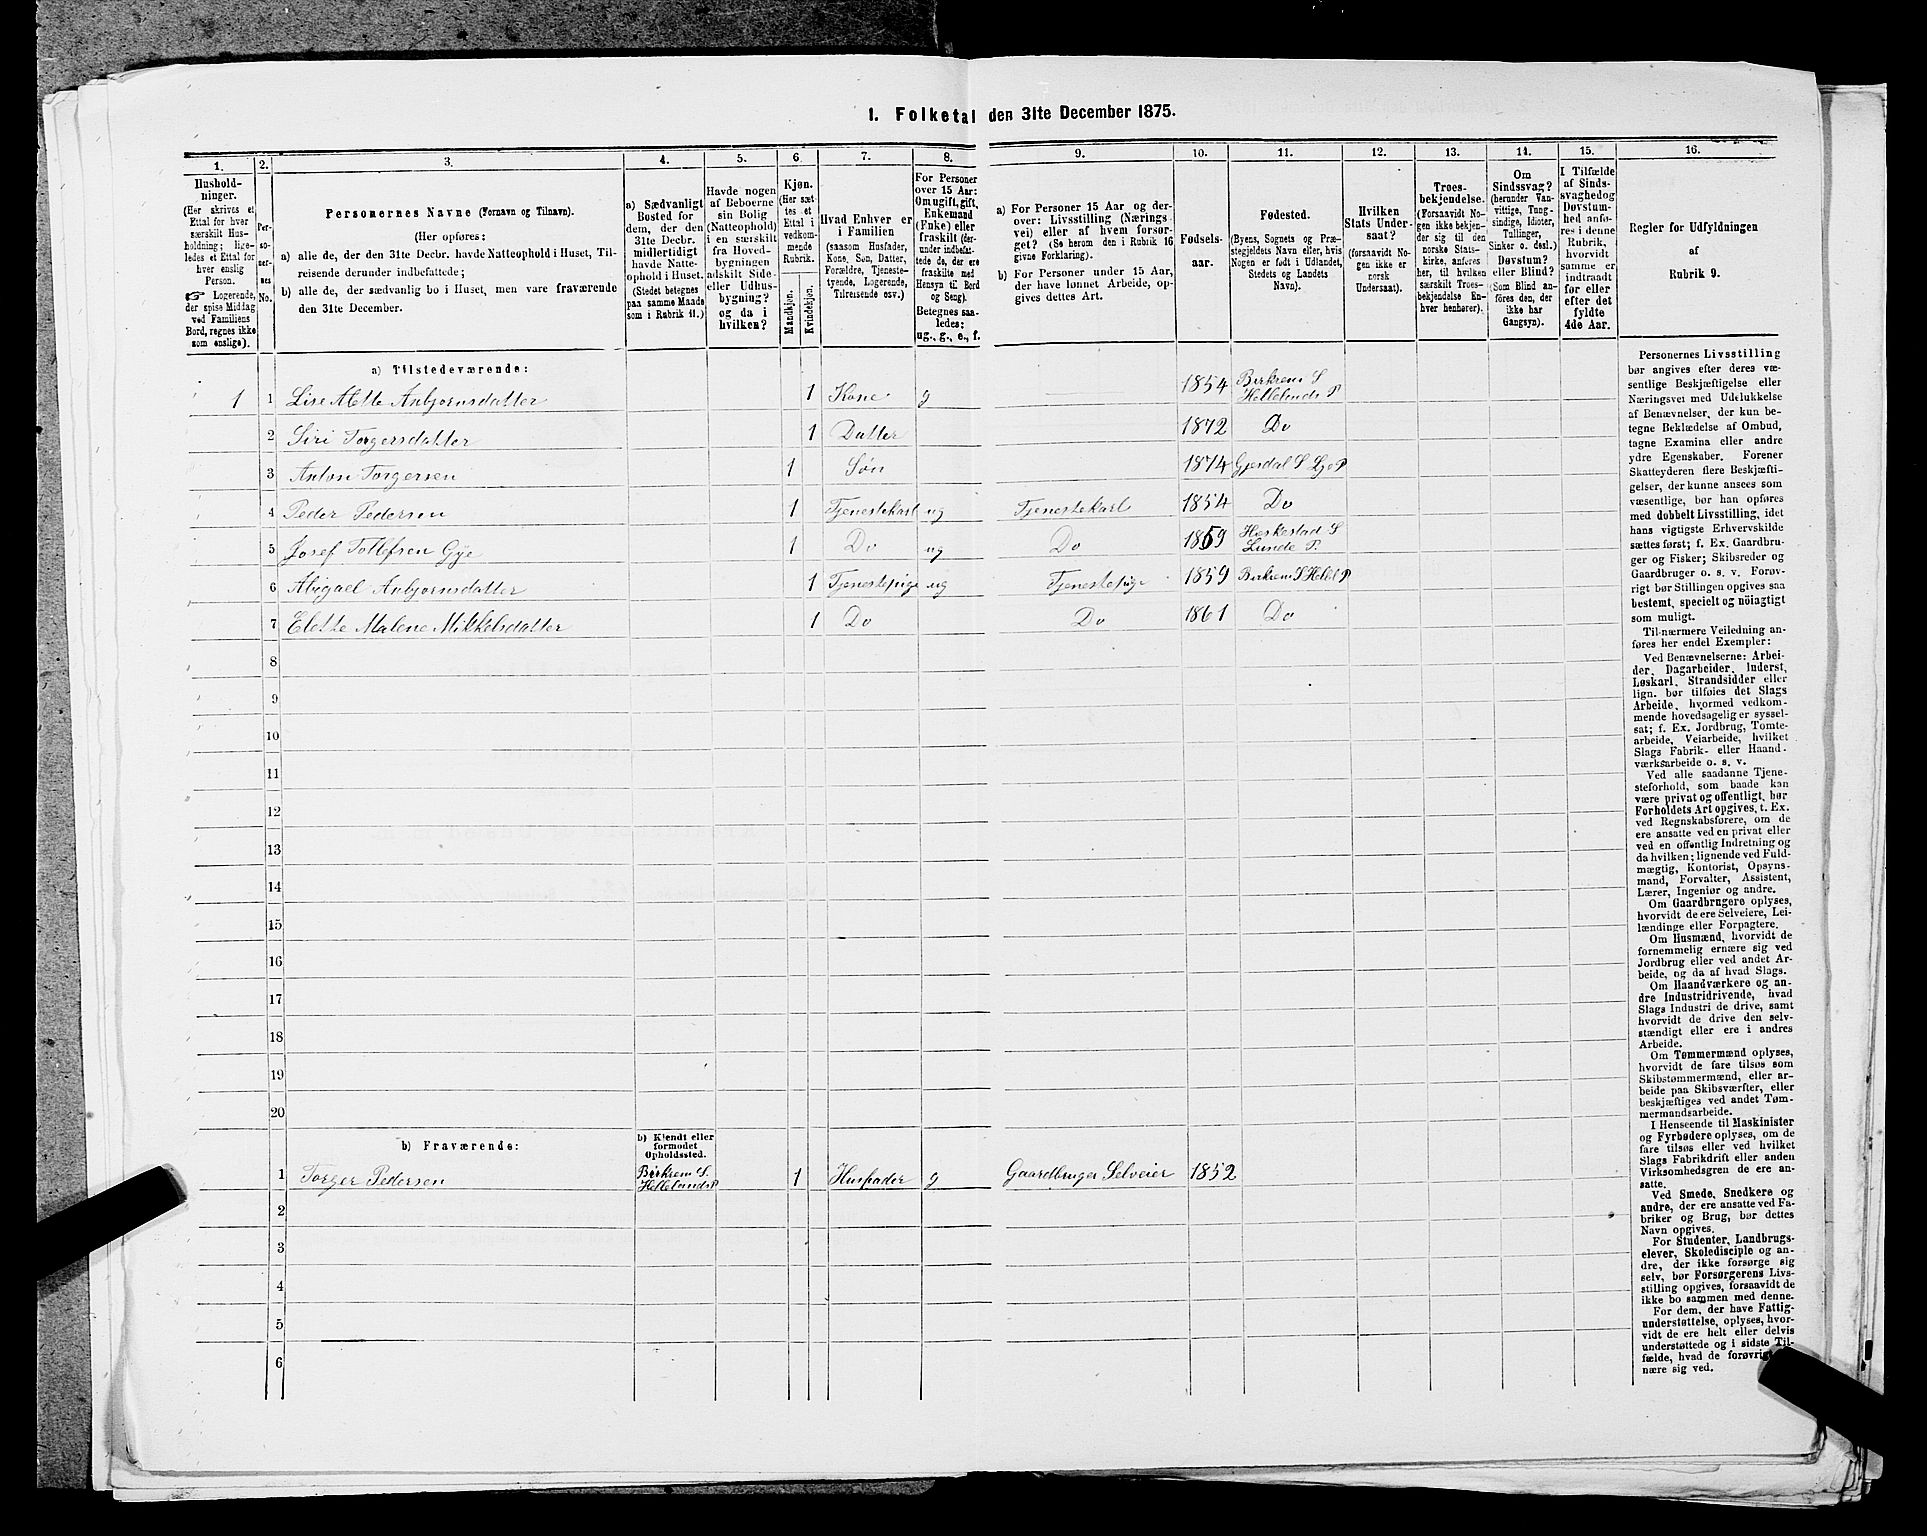 1. Folketal den 31te December 1875.
1. 2. 3. 4. 5. 6. 7. 8. 9. 10. 11. 12. 13. 14. 15. 16.
Hushold-
ninger.
(Her skrives et
Ettal for hver
særskilt Hus-
holdning; lige-
ledes et Ettal for
hver enslig
Person.
☞ Logerende,
der spise Middag
ved Familiens
Bord, regnes ikke
som enslige).
Per-
so-
ner-
nes
No.
Personernes Navne (Fornavn og Tilnavn).
(Her opføres:
a) alle de, der den 31te Decbr. havde Natteophold i Huset, Til-
reisende derunder indbefattede;
b) alle de, der sædvanlig bo i Huset, men vare fraværende
den 31te December.
a) Sædvanligt
Bosted for
dem, der den
31te Decbr.
midlertidigt
havde Natte-
ophold i Huset.
(Stedet betegnes
paa samme Maade
som i Rubrik 11.)
Havde nogen
af Beboerne
sin Bolig
(Natteophold)
i en særskilt
fra Hoved-
bygningen
adskilt Side-
eller Udhus-
bygning?
og da i
hvilken?
Kjøn.
(Her sæt-
tes et
Ettal i
vedkom-
mende
Rubrik.
Mandkjøn.
Kvindekjøn.
Hvad Enhver er
i Familien
(saasom Husfader,
Kone, Søn, Datter,
Forældre, Tjeneste-
tyende, Logerende,
Tilreisende osv.)
For Personer
over 15 Aar:
Om ugift, gift,
Enkemand
(Enke) eller
fraskilt (der-
under indbefat-
tede de, der ere
fraskilte med
Hensyn til Bord
og Seng).
Betegnes saa-
ledes:
ug., g., e., f.
a) For Personer 15 Aar og der-
over: Livsstilling (Nærings-
vei) eller af hvem forsør-
get? (Se herom den i Rubrik 16
givne Forklaring).
b) For Personer under 15 Aar,
der have lønnet Arbeide, op-
gives dettes Art.
Fødsels-
aar.
Fødested.
(Byens, Sognets og Præ-
stegjeldets Navn eller, hvis
Nogen er født i Udlandet,
Stedets og Landets
Navn).
Hvilken
Stats Under-
saat?
(forsaavidt No-
gen ikke er
norsk
Undersaat).
Troes-
bekjendelse.
(Forsaavidt No-
gen ikke bekjen-
der sig til den
norske Stats-
kirke, anføres
her, til hvilken
særskilt Troes-
bekjendelse En-
hver henhører).
Om
Sindssvag?
(herunder Van-
vittige, Tung-
sindige, Idioter,
Tullinger,
Sinker o. desl.)
Døvstum?
eller Blind?
(Som Blind an-
føres den, der
ikke har
Gangsyn).
I Tilfælde
af Sinds-
svaghed og
Døvstum-
hed anfø-
res i denne
Rubrik,
hvorvidt
samme er
indtraadt
før eller
efter det
fyldte
4de Aar.
Regler for Udfyldningen
af
Rubrik 9.
a) Tilstedeværende:
1 1 Lise Alette Anbjornsdatter 1 Kone g 1854 Birkrem S Hellelands P
2 Siri Torgersdatter 1 Datter 1872 Do
3 Anton Torgersen 1 Søn 1874 Gjesdal S Lye P
4 Peder Pedersen 1 Tjenestekarl ug Tjenestekarl 1854 Do
5 Josef Tollefsen Gye 1 Do ug Do 1859 Heskestad S Lunde P.
6 Abigael Anbjornsdatter 1 Tjenestepige ug Tjenestepige 1859 Birkrem S Hellel P
7 Elette Malene Mikkelsdatter 1 Do Do 1861 Do
8
9
10
11
12
13
14
15
16
17
18
19
20
b) Fraværende:
b) Kjendt eller
formodet
Opholdssted.
1 Torger Pedersen Birkrem S. Hellelands P 1 Husfader g Gaardbruger Selveier 1852
2
3
4
5
6
Personernes Livsstilling
bør angives efter deres væ-
sentlige Beskjæftigelse eller
Næringsvei med Udelukkelse
af Benævnelser, der kun be-
tegne Beklædelse af Ombud,
tagne Examina eller andre
ydre Egenskaber. Forener
Skatteyderen flere Beskjæfti-
gelser, der kunne ansees som
væsentlige, bør han opføres
med dobbelt Livsstilling, idet
hans vigtigste Erhvervskilde
sættes først; f. Ex. Gaardbru-
ger og Fisker; Skibsreder og
Gaardbruger o. s. v. Forøv-
rigt bør Stillingen opgives saa
bestemt, specielt og nöiagtigt
som muligt.
Til nærmere Veiledning an-
føres her endel Exempler:
Ved Benævnelserne: Arbei-
der, Dagarbeider, Inderst,
Løskarl, Strandsidder eller
lign. bør tilføies det Slags
Arbeide, hvormed vedkom-
mende hovedsagelig er syssel-
sat; f. Ex. Jordbrug, Tomte-
arbeide, Veiarbeide, hvilket
Slags Fabrik- eller Haand-
værksarbeide o. s. v.
Ved alle saadanne Tjene-
steforhold, som baade kan
være privat og offentligt, bør
Forholdets Art opgives, t. Ex.
ved Regnskabsførere, om de
ere ansatte ved en privat eller
ved en offentlig Indretning og
da hvilken; lignende ved Fuld-
mægtig, Kontorist, Opsyns-
mand, Forvalter, Assistent,
Lærer, Ingeniør og andre.
Om Gaardbrugere oplyses,
hvorvidt de ere Selveiere, Lei-
lændinge eller Forpagtere.
Om Husmænd, hvorvidt de
fornemmelig ernære sig ved
Jordbrug eller ved andet Ar-
beide, og da af hvad Slags.
Om Haandværkere og an-
dre Industridrivende, hvad
Slags Industri de drive, samt
hvorvidt de drive den selv-
stændigt eller ere i andres
Arbeide.
Om Tømmermænd oplyses,
hvorvidt de fare tilsøs som
Skibstømmermænd, eller ar-
beide paa Skibsværfter, eller
beskjæftiges ved andet Tøm-
mermandsarbeide.
I Henseende til Maskinister
og Fyrbødere oplyses, om de
fare tilsøs eller ved hvilket
Slags Fabrikdrift eller anden
Virksomhedsgren de ere an-
satte.
Ved Smede, Snedkere og
andre, der ere ansatte ved Fa-
briker og Brug, bør dettes
Navn opgives.
For Studenter, Landbrugs-
elever, Skoledisciple og an-
dre, der ikke forsørge sig
selv, bør Forsørgerens Livs-
stilling opgives, forsaavidt de
ikke bo sammen med denne.
For dem, der have Fattig-
understøttelse, oplyses, hvor-
vidt de ere helt eller delvis
understøttede og i sidste Til-
fælde, hvad de forøvrigt
nære sig ved.